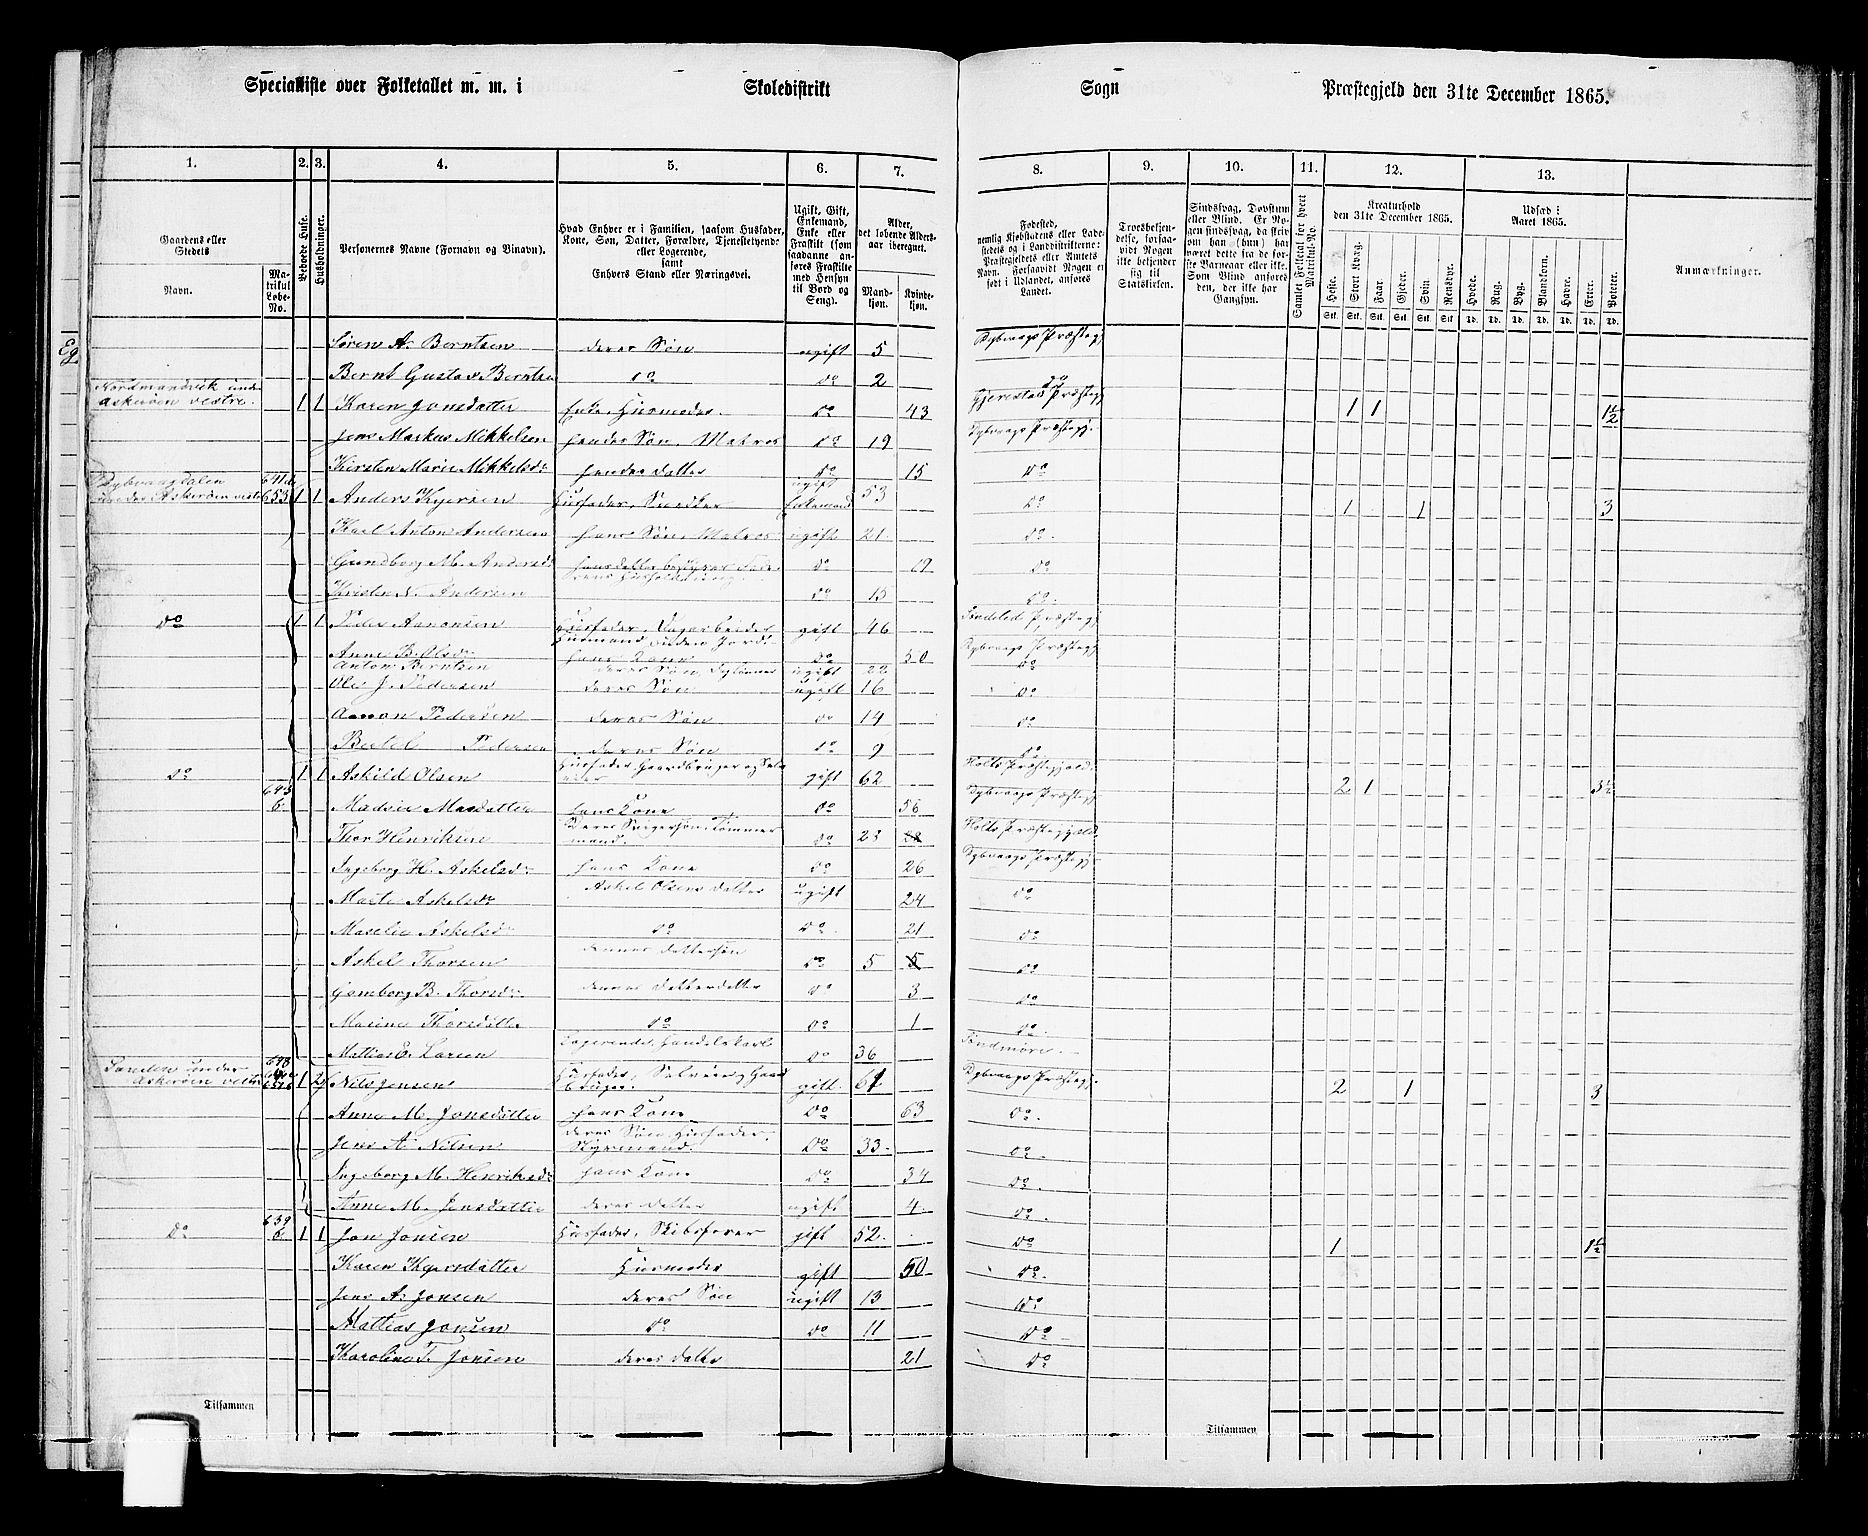 Specialliste over Folketallet m. m. i Skoledistrikt Sogn Præstegjeld den 31te December 1865.
1. 2. 3. 4. 5. 6. 7. 8. 9. 10. 11. 12. 13.
Gaardens eller Stedets Navn. Matrikul Løbe-No.
Beboede Huse.
Husholdninger.
Personernes Navne (Fornavn og Binavn).
Hvad Enhver er i Familien, saasom Husfader, Kone, Søn, Datter, Forældre, Tjenestetyende eller Logerende, samt Enhvers Stand eller Næringsvei.
Ugift, Gift, Enkemand, Enke eller Fraskilt (som saadanne anføres Fraskilte med Hensyn til Bord og Seng).
Alder, det løbende Aldersaar iberegnet. Mandkjøn. Kvindekjøn.
Fødested, nemlig Kjøbstadens eller Ladestedets og i Landdistrikterne: Præstegjeldets eller Amtets Navn. Forsaavidt Nogen er født i Udlandet, anføres Landet.
Troesbekjendelse, forsaavidt Nogen ikke bekjender sig til Statskirken.
Sindssvag, Døvstum eller Blind. Er Nogen sindssvag, da skrives om han (hun) har været dette fra de første Barneaar eller ikke. Som Blind anføres den, der ikke har Gangsyn.
Samlet Folketal for hvert Matrikul-No.
Kreaturhold den 31te December 1865.
Heste. Stort Kvæg. Faar. Gjeder. Svin. Rensdyr.
Stk. Stk. Stk. Stk. Stk. Stk.
Udsæd i Aaret 1865.
Hvede. Rug. Byg. Blandkorn. Havre. Erter. Poteter.
Td. Td. Td. Td. Td. Td. Td.
Anmærkninger.
Eg
Søren A. Berntsen deres Søn ugift 5 Dybvaags Præstegj.
Bernt Gustav Berntse do do 2 do
Nordmandvik under Askerøen vestre. 1 1 Karen Jonsdatter Enke, Husmoder. do 43 Gjerestad Præstegj 1 1 1½
Jens Markus Mikkelsen hendes Søn, Matros do 19 Dybvaags Præstegj.
Kirsten Marie Mikkelsdr hendes datter do 15 do
Dybvaagdalen under Askerøen vestre 653 1 1 Anders Kjersen Husfader, Snedker Enkemand 53 do 1 1 3
Karl Anton Andersen hans Søn, Matros ugift 21 do.
Gundborg M. Andersdr hans datter bestyrer Faderens Husholdning do 19 do
Kristen N. Andersen do 15 do.
do 1 1 Peder Aanonsen Husfader, Dagarbeider Husmand uden Jord gift 46 Søndeled Præstegj
Anne B. Olsdr hans Kone do 50 Dybvaags Præstegj
Anton Berntsen deres Søn, ugift 22 do
Ole J. Pedersen deres Søn ugift 16 do
Aanon Pedersen deres Søn do 14 do
Bertel Pedersen deres Søn do 9 do
do 1 1 Askild Olsen Husfader, Gaardbruger og Selveier gift 62 Holts Præstegjæld. 2 1 3½
Madsie Masdatter hans Kone do 56 Dybvaags Præstegj
Thor Henriksen Deres Svigersøn, Tømmermand. do 28 Holts Præstegjæld
Ingeborg H. Askelsdr hans Kone do 26 Dybvaags Præstegj
Marte Askelsdr Askel Olsens datter ugift 24 do
Maselie Askelsdr do do 21 do
Askel Thorsen dennes dattersøn do 5 5 do
Gomborg B. Thorsdr dennes datterdatter do 3 do
Marine Thorsdatter do do 1 do.
Mattias E. Larsen Logerende, Handelskarl do 36 Søndmøre
Sanden under Askerøen vestre 648 1 2 Nils Jensen Husfader, Selveier, Gaardbruger. gift. 61 Dybvaags Præstegj. 2 1 3
Anne M. Jonsdatter hans Kone do 63 do.
Jens A. Nilsen deres Søn, Husfader, Styrmand. do 33 do.
Ingeborg M. Henriksdr hans Kone do 34 do.
Anne M. Jensdatter deres datter ugift 4 do.
do 639 6 1 1 Jon Jonsen Husfader, Skibsfører gift 52 do 1 1½
Karen Kjersdatter Husmoder gift 50 do.
Jens A. Jonsen deres Søn ugift 13 do
Mattias Jonsen do do 11 do
Karoline T. Jonsen deres datter 21 do
Tilsammen Tilsammen